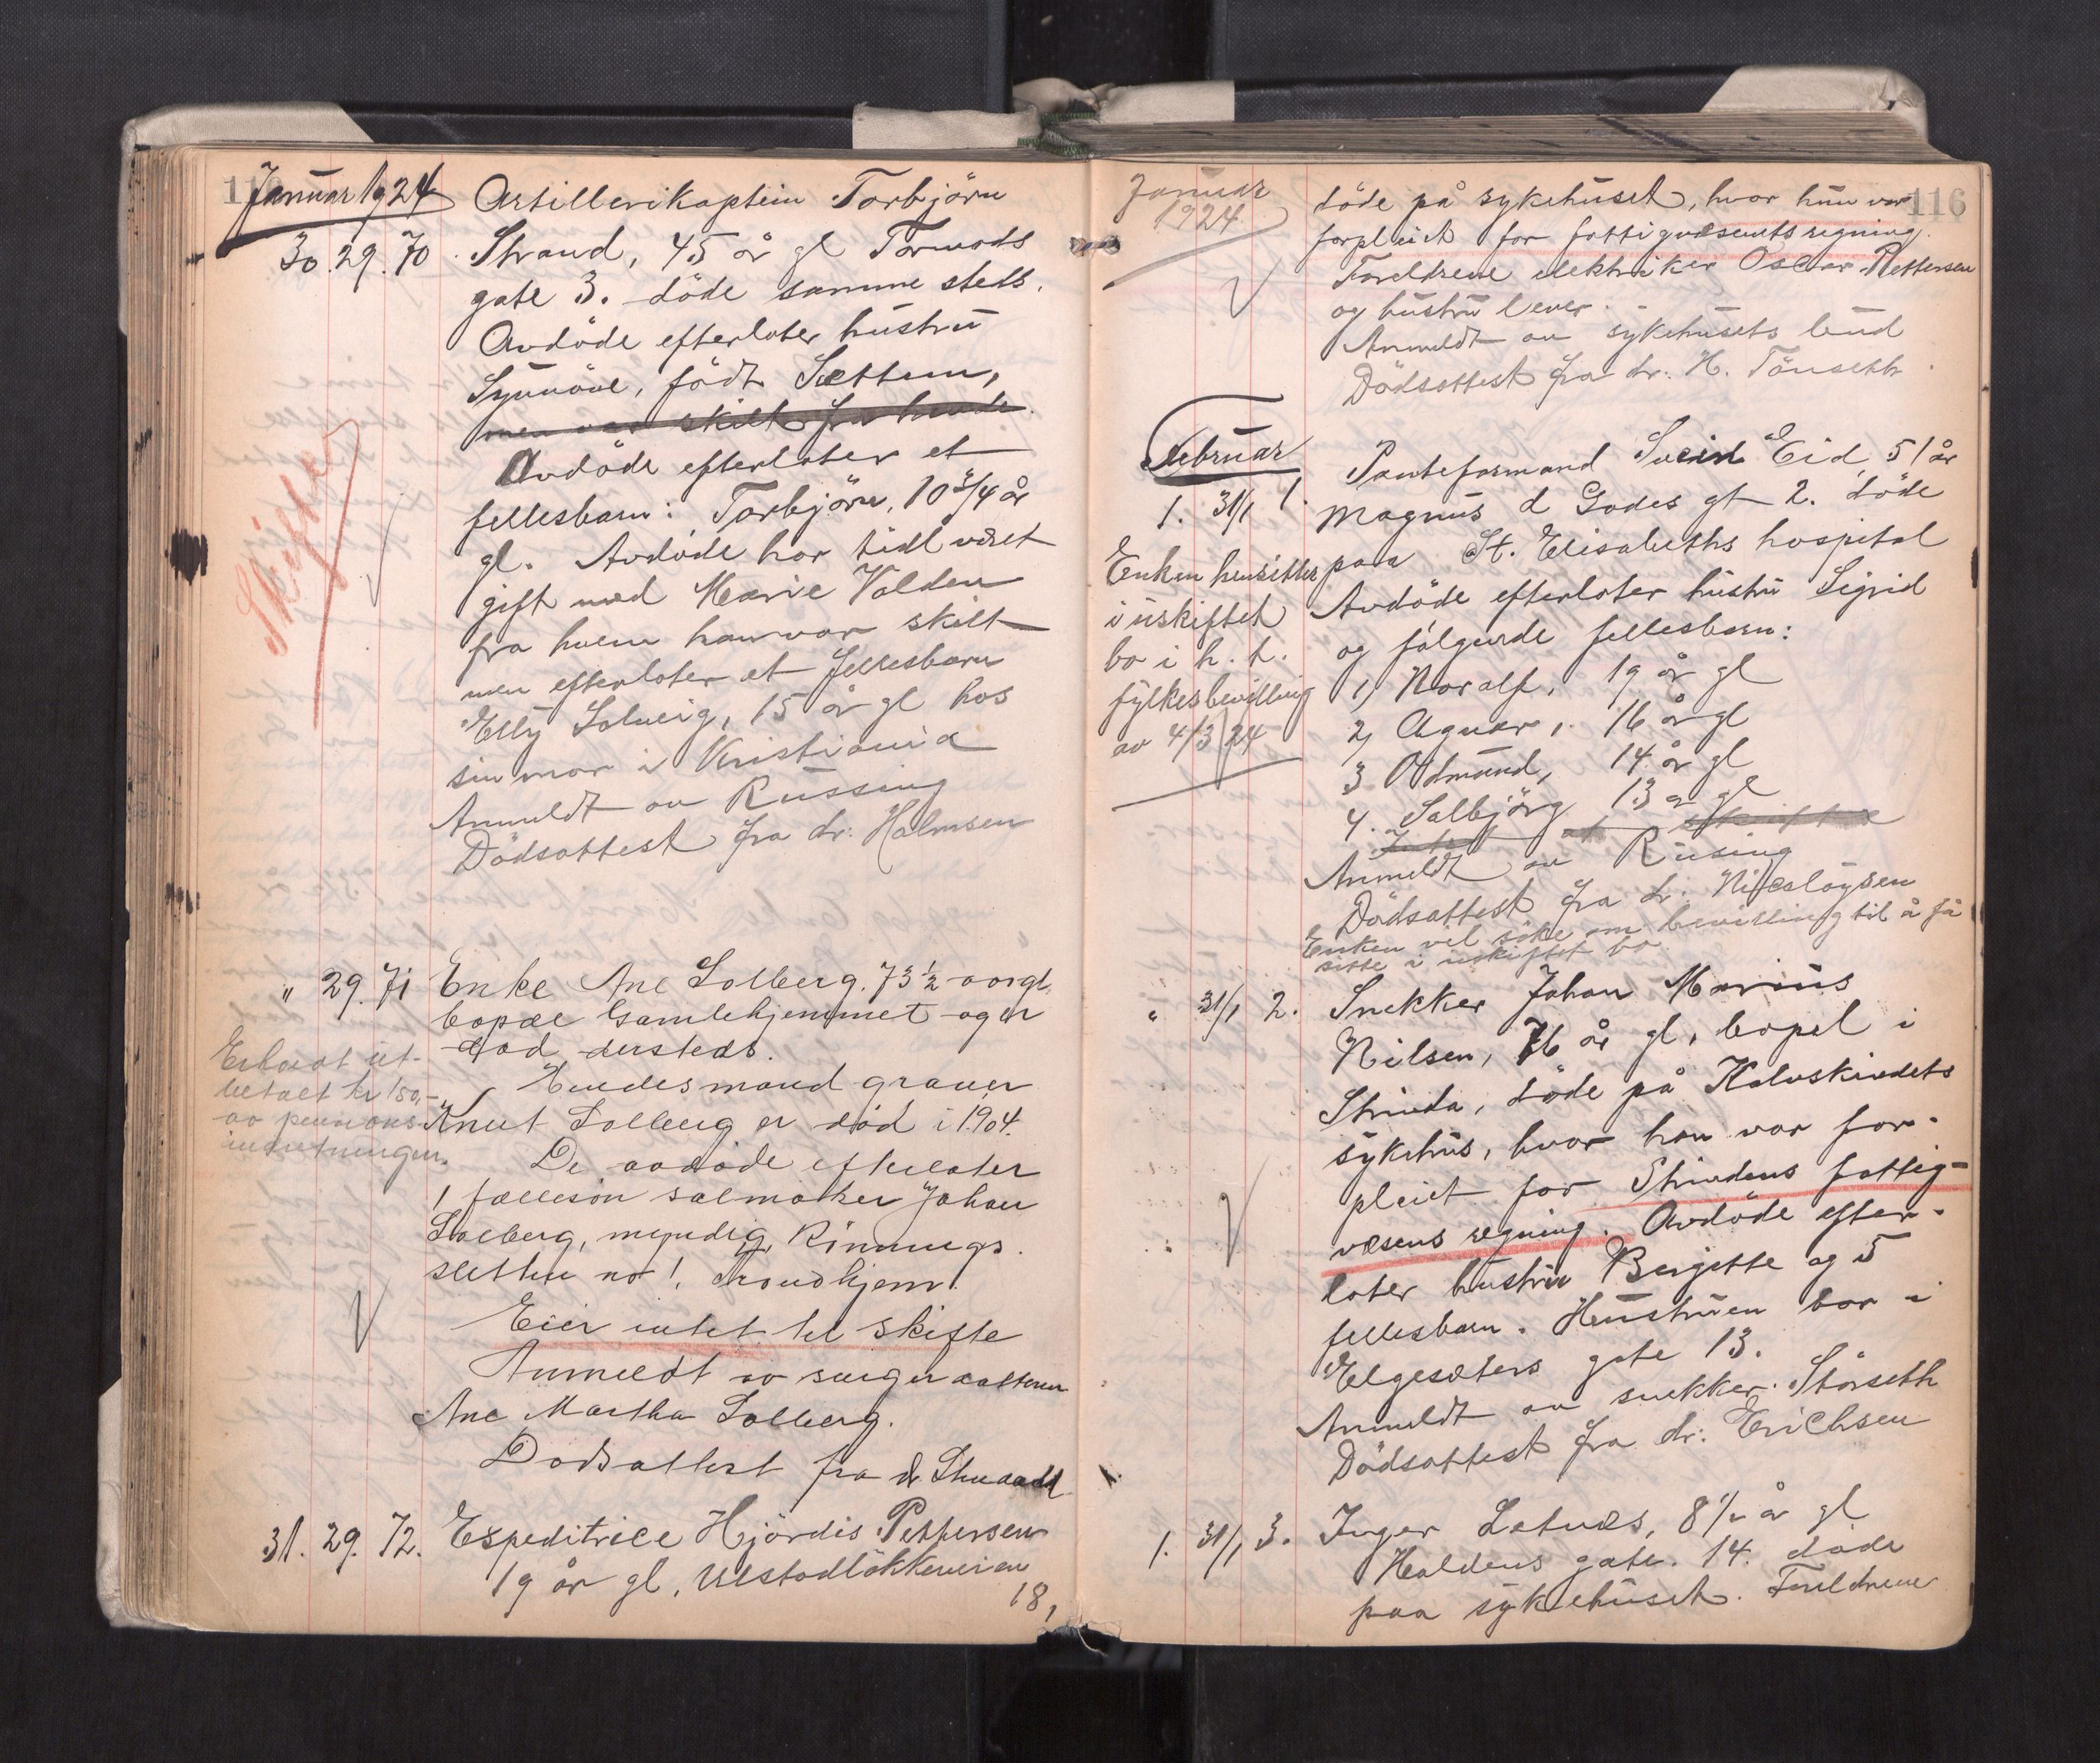 Januar 1924
Artillerikaptein Torbjörn
30. 29. 70. Strand, 45 år gl Tormods
gate 3. döde samme steds.
Avdöde efterlater hustru
Synnöve, födt Sættem,
men var skilt fra hende.
Avdöde efterlater et
fellesbarn: Torbjörn, 10 3/4 år
gl. Avdöde har tidl været
gift med Marie Volden
fra hvem han var skilt
men efterlater et fellesbarn
Elly Solveig, 15 år gl hos
sin mor i Kristiania
Anmeldt av Russing
Dödsattest fra dr. Holmsen
Skifter
" 29. 71 Enke Ane Solberg. 73 1/2 aar gl.
bopæl Gamlehjemmet og er
död dersteds.
Endes mand graver
Knut Solberg er död i 1904.
De avdöde efterlater
1 fællessön salmaker Johan
Solberg, myndig,
sletten no 1. Trondhjem.
Eier intet til skifte
Anmeldt av svigerdatteren
Ane Martha Solberg.
Dödsattest fra dr
Erholdt ut-
betalt kr 150,-
av pensions-
indretningen.
31. 29. 72. Expeditrice Hjördis Pettersen
19 år gl, Ulstadlökkenveien
18,
Januar
1924
116
döde på sykehuset, hvor hun var
forpleiet for fattigvæsenets regning.
Foreldrene elektriker Oscar Pettersen
og hustru lever.
Anmeldt av sykehusets bud
Dödsattest fra dr. H. Tönseth
Februar
1. 31/1 1. Panteformand Svein Eid, 51 år
Magnus d Godes gt 2. döde
paa St. Elisabeths hospital
Avdöde efterlater hustru Sigrid
og følgende fellesbarn:
1, Noralf, 19 år gl
2, Agnar, 16 år gl
3 Odmund, 14 år gl
4. Solbjörg 13 år gl
Intet at skifte
Anmeldt av Rusing
Dödsattest fra dr. Nicolaysen
Enken vil söke om bevilling til å få
sitte i uskiftet bo
Enken hensitter
i uskiftet
bo i h. t.
fylkesbevilling
av 4/3 24
" 31/1 2. Snekker Johan Marius
Nilsen, 76 år gl, bopel i
Strinda, döde på Kalvskindets
sykehus, hvor han var for-
pleiet for Strindens fattig-
væsens regning. Avdöde efter-
later hustru Bergitte og 5
fellesbarn. Hustruen bor i
Elgesæters gate 13.
Anmeldt av snekker Störseth
Dödsattest fra dr. Erichsen
1. 31/1 3. Inger Letnes, 8 1/2 år gl
Haldens gate. 14. döde
paa sykehuset. Foreldrene